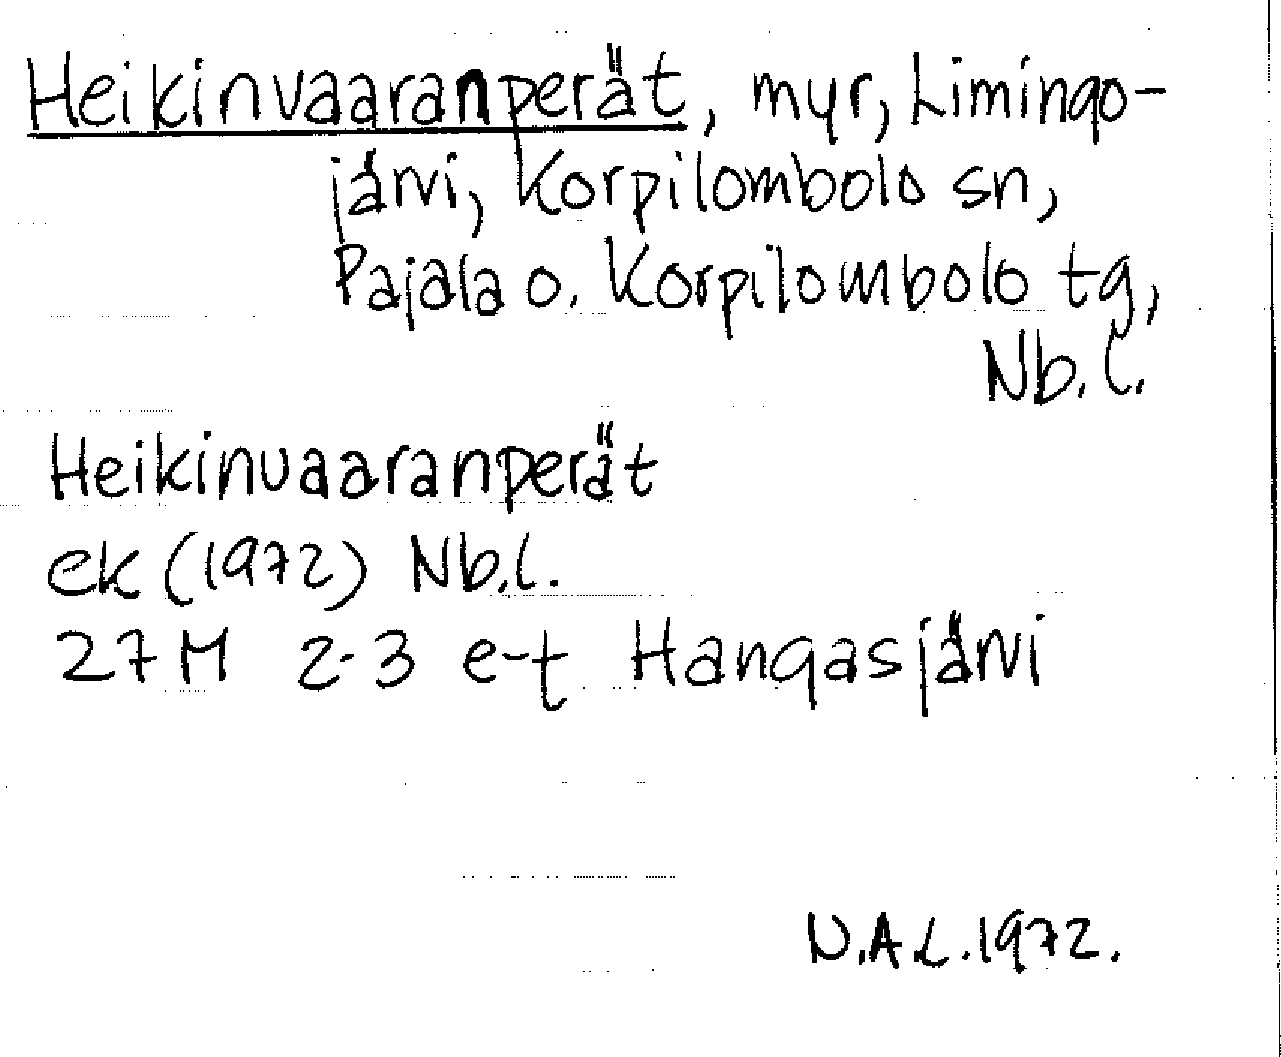 Heikinvaaranperät, myr, Limingo-
järvi, Korpilombolo sn,
Pajala o. Korpilombolo tg,
Nb.l.
Heikinvaaranperät
ek (1972) Nb.l.
27M 2-3 e-t Hangasjärvi
N.A L.1972.